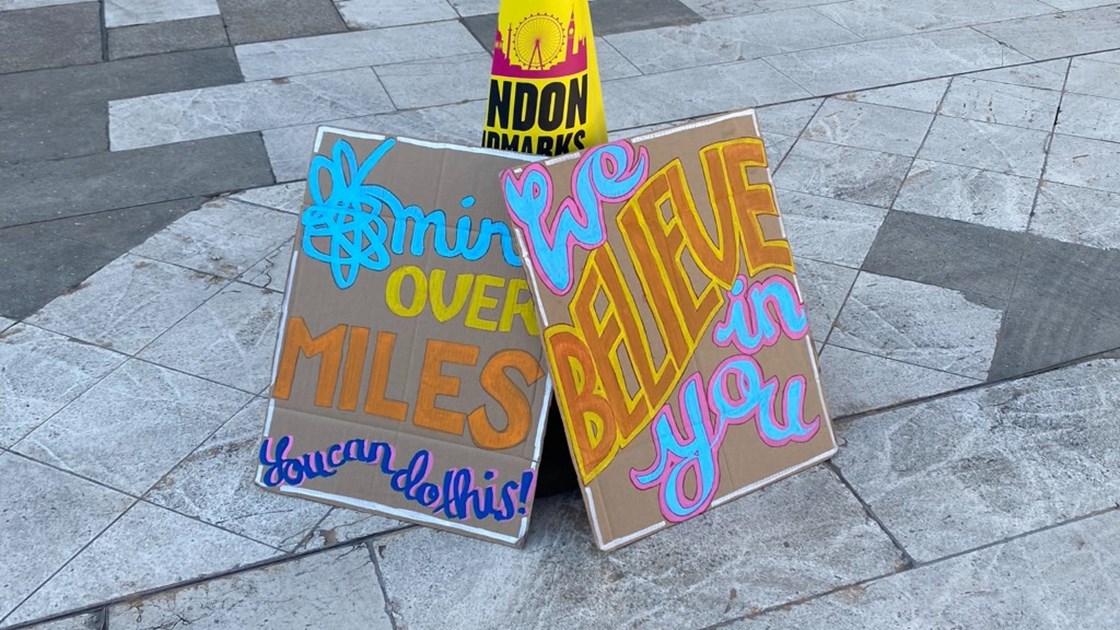 NDON
DMARKS
min
OVER
MILES
You can do this!
We
BELIEVE
in
you